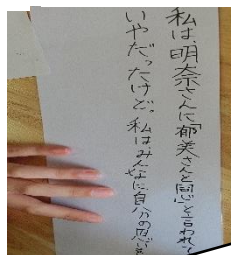 私は、明奈さんに「郁美さんと同じ」と言われて
いやだったけど。私はみんなに自分の思いを